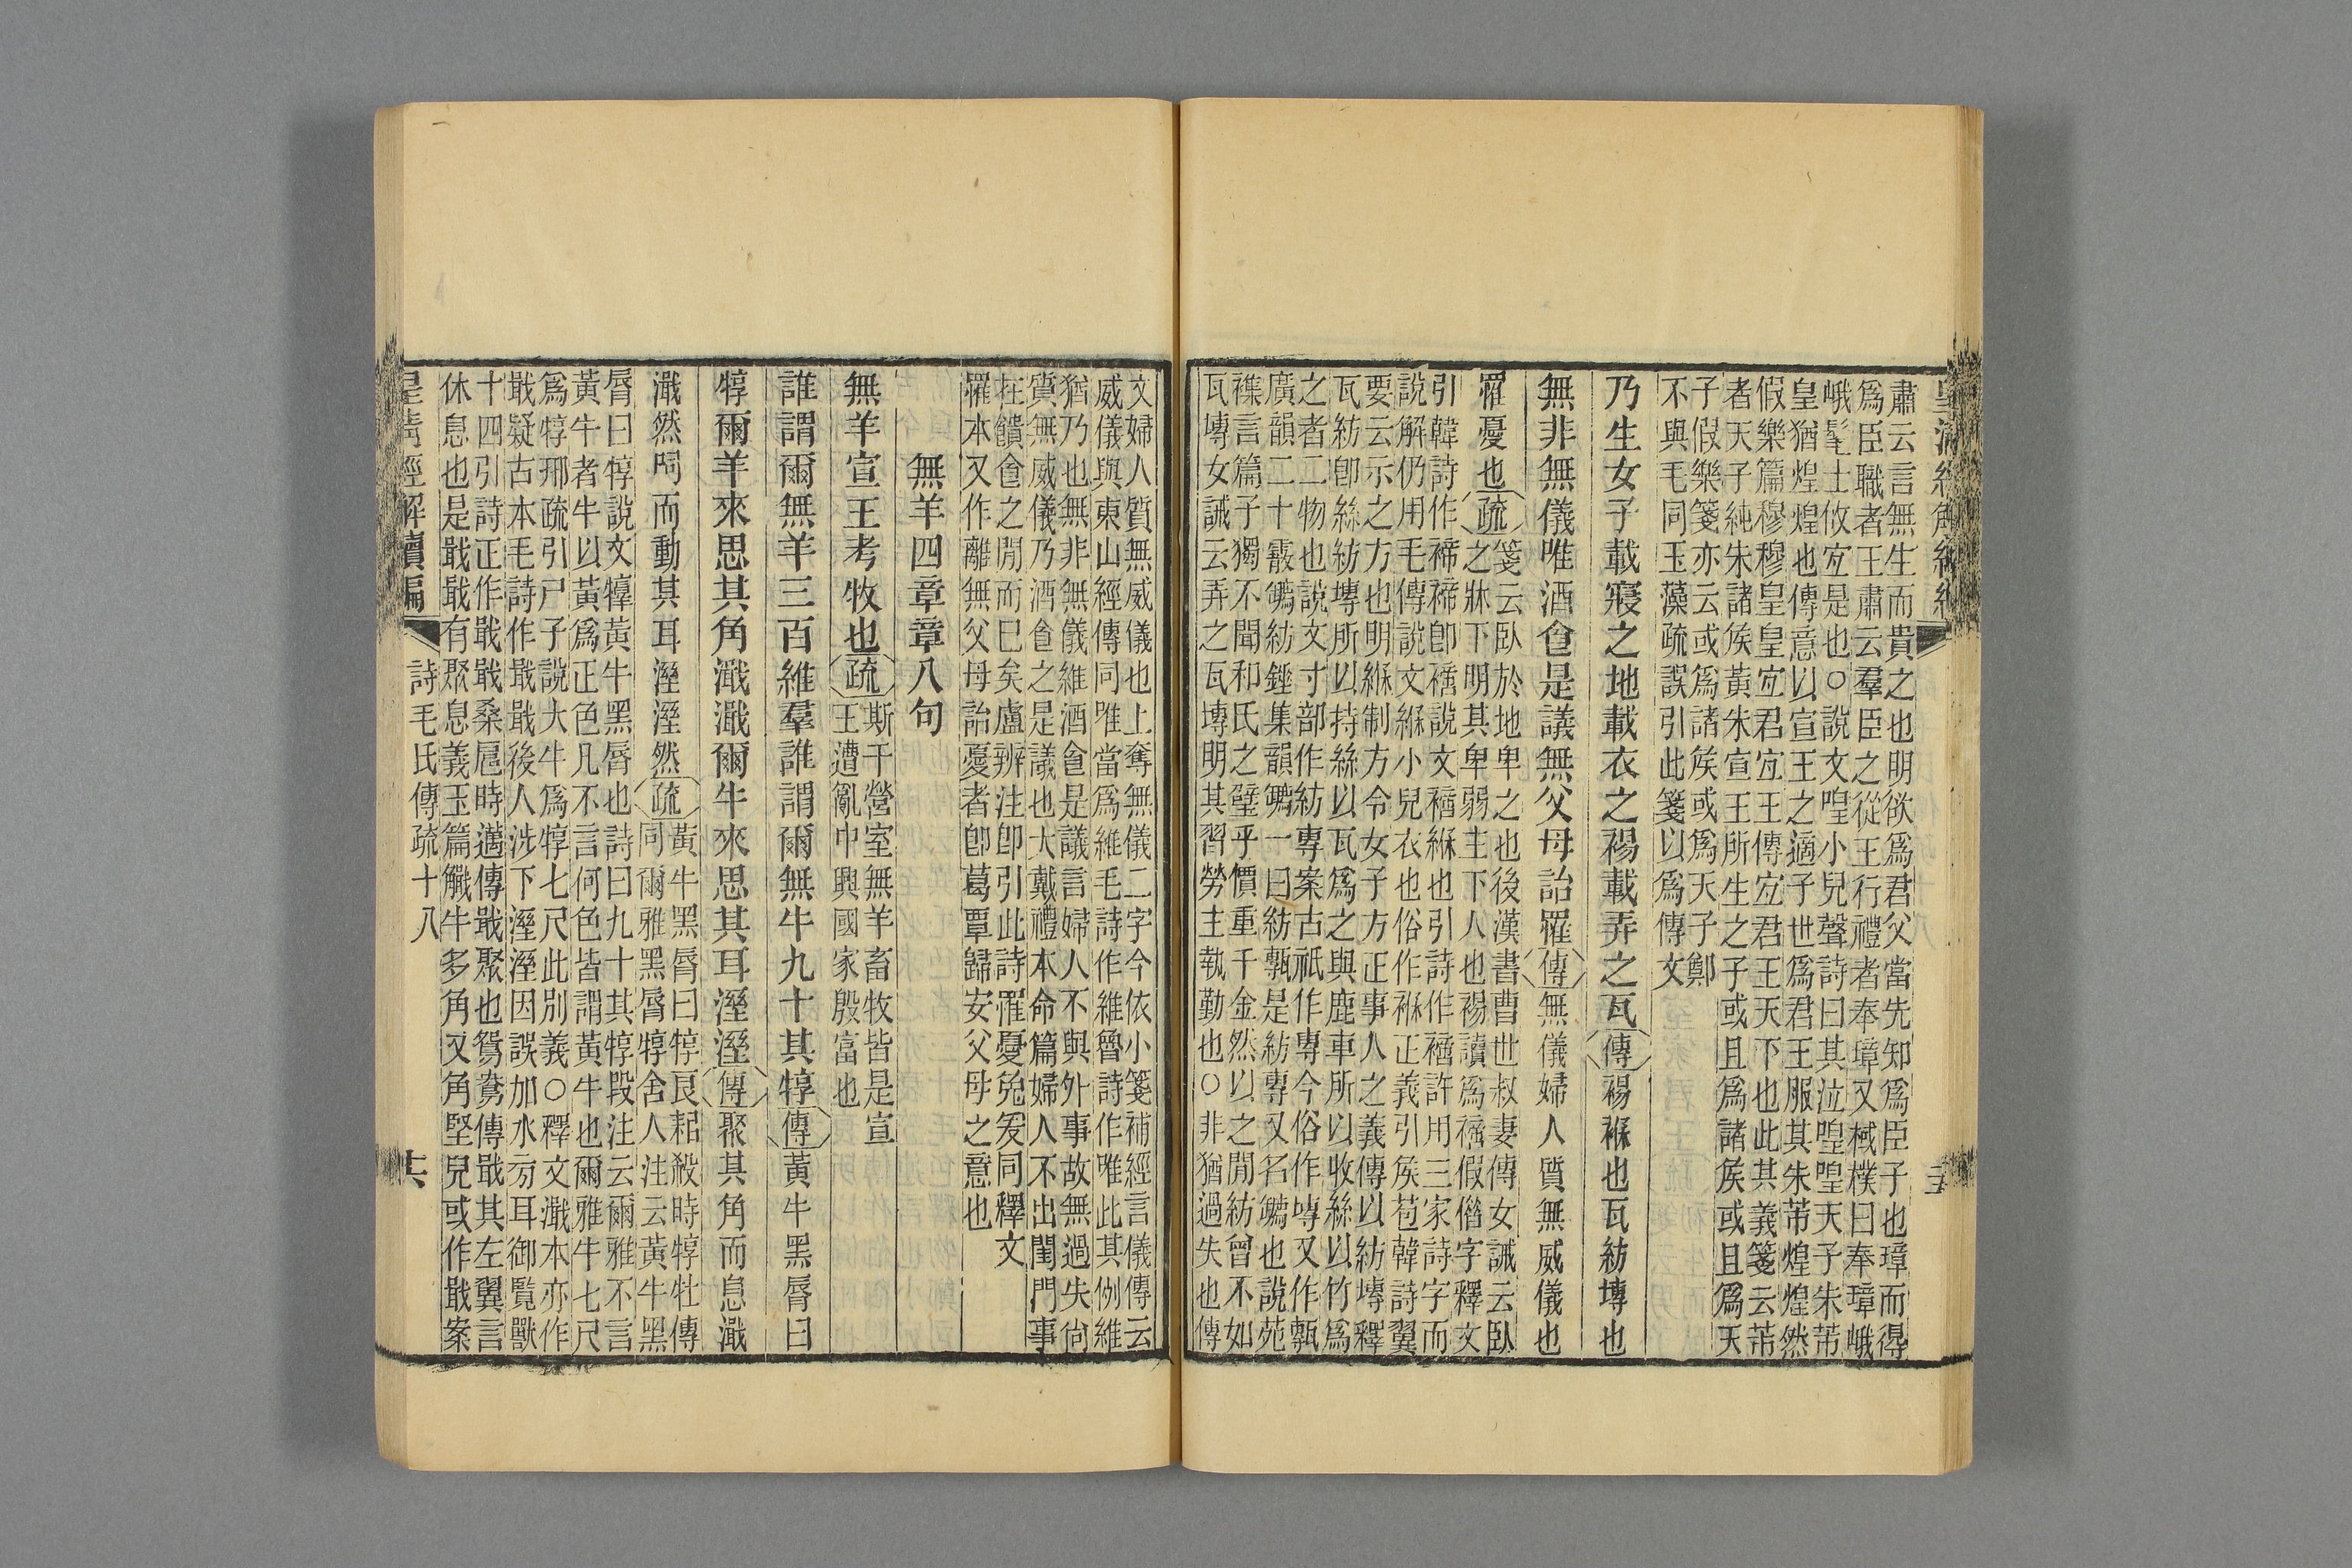 肅云言無生而貴之也明欲爲君父當先知爲臣子也璋而得
爲臣職者王肅云羣臣之從王行禮者奉璋又棫樸曰奉璋峨
峨髦士攸宐是也○說文喤小兒聲詩曰其泣喤喤天子朱芾
皇猶煌煌也傳意以宣王之適子世爲君王服其朱芾煌煌然
假樂篇穆穆皇皇宐君宐王傳宐君王天下也此其義箋云芾
者天子純朱諸矦黃朱宣王所生之子或且爲諸矦或且爲天
子假樂箋亦云或爲諸矦或爲天子鄭
不與毛同玉藻疏誤引此箋以爲傳文
乃生女子載寢之地載衣之裼載弄之瓦傳裼褓也瓦紡塼也
無非無儀唯酒食是議無父母詒罹傳無儀婦人質無威儀也
罹憂也疏
箋云臥於地卑之也後漢書曹世叔妻傳女誡云臥
之牀下明其卑弱主下人也裼讀爲䄺假僭字釋文
引韓詩作褅褅卽䄺說文䄺褓也引詩作䄺許用三家詩字而
說解仍用毛傳說文緥小兒衣也俗作褓正義引矦苞韓詩翼
要云示之方也明緥制方令女子方正事人之義傳以紡塼釋
瓦紡卽絲紡塼所以持絲以瓦爲之與鹿車所以收絲以竹爲
之者二物也說文寸部作紡專案古祇作專今俗作塼又作甎
廣韻二十霰䥥紡錘集韻䥥一曰紡甎是紡專又名䥥也說苑
襍言篇子獨不聞和氏之璧乎價重千金然以之閒紡曾不如
瓦塼女誡云弄之瓦塼明其習勞主執勤也○非猶過失也傳
文婦人質無威儀也上奪無儀二字今依小箋補經言儀傳云
威儀與東山經傳同唯當爲維毛詩作維魯詩作唯此其例維
猶乃也無非無儀維酒食是議言婦人不與外事故無過失尙
質無威儀乃酒食之是議也大戴禮本命篇婦人不出閨門事
在饋食之閒而巳矣盧辨注卽引此詩罹憂兔爰同釋文
罹本又作離無父母詒憂者卽葛覃歸安父母之意也
無羊四章章八句
無羊宣王考牧也疏
斯干營室無羊畜牧皆是宣
王遭亂中興國家殷富也
誰謂爾無羊三百維羣誰謂爾無牛九十其犉傳黃牛黑脣曰
犉爾羊來思其角濈濈爾牛來思其耳溼溼傳聚其角而息濈
濈然呞而動其耳溼溼然疏
黃牛黑脣曰犉良耜殺時犉牡傳
同爾雅黑脣犉舍人注云黃牛黑
脣曰犉說文犉黃牛黑脣也詩曰九十其犉段注云爾雅不言
黃牛者牛以黃爲正色凡不言何色皆謂黃牛也爾雅牛七尺
爲犉邢疏引尸子說大牛爲犉七尺此別義○釋文濈本亦作
戢疑古本毛詩作戢戢後人涉下溼溼因誤加水㫄耳御覽獸
十四引詩正作戢戢桑扈時邁傳戢聚也鴛鴦傳戢其左翼言
休息也是戢戢有聚息義玉篇觹牛多角又角堅皃或作戢案
皇淸經解續編
詩毛氏傳疏十八